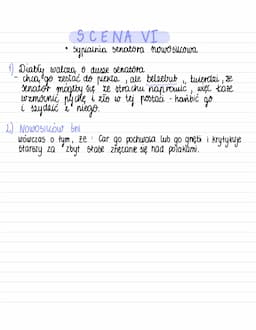 SCENA VI
• Sypialnia senatora Nowosilcowa
1) Diabły walczą o duszę senatora
- chcą go zesłać do piekła, ale belzebub twierdzi, że
senator mógłby się ze strachu naprawić, więc każe
wzmocnić pychę i zło w tej postaci - hańbić go
i szydzić z niego.
2.) Nowosilcow śni
wówczas o tym, że: Car go pochwala lub go gnębi i krytykuje
starszy za zbyt słabe znęcanie się nad polakami.